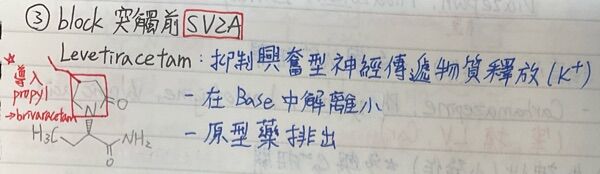 ③ block 突觸前 SV2A
Levetiracetam：抑制興奮型神經傳遞物質釋放(K⁺)
★
導入
propyl
→brivaracetam
N
O
- 在 Base 中解離小
H₃C
NH₂
O
- 原型藥排出